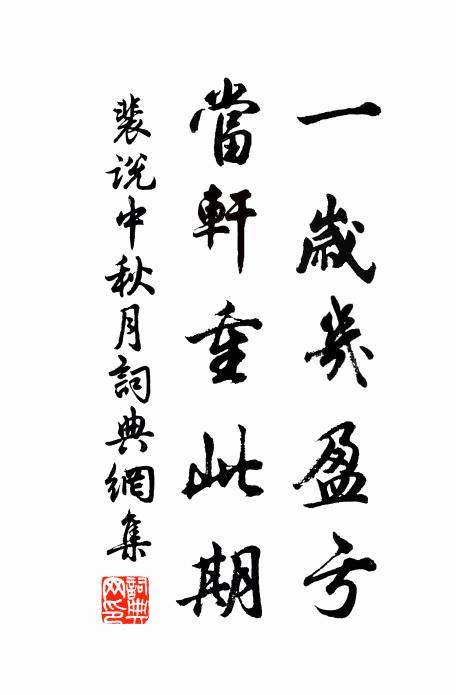 一歲幾盈亏
當軒重此期
裴说中秋月詞典網集
詞典網印